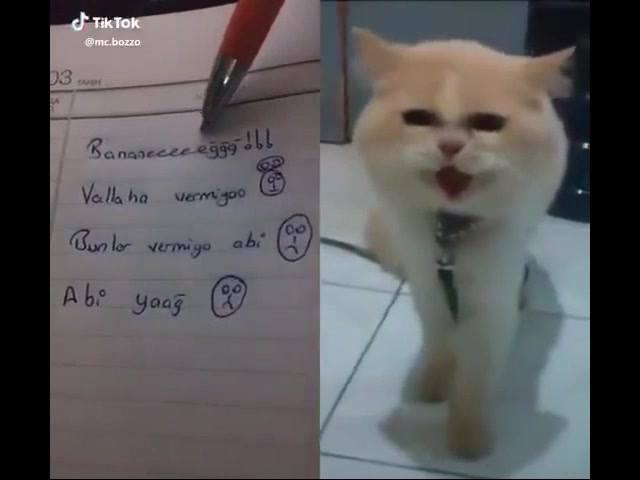 TikTok
@mc.bozzo
03
Bananeeeeeğğğ!!!
Vallaha vermigoo
Bunlar vermiyo abi
Abi yaağ